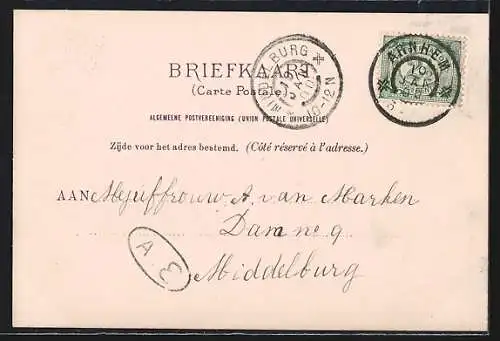 BRIEFKAART
(Carte Postale)
ALGEMEENE POSTVEREENIGING (UNION POSTALE UNIVERSELLE)
Zijde voor het adres bestemd. (Côté réservé à l'adresse.)
MIDDELBURG
19 JAN
10-12N
ARNHEM
JAN
AAN Mejuffrouw A. van Marken
Dam no 9
Middelburg
A.E